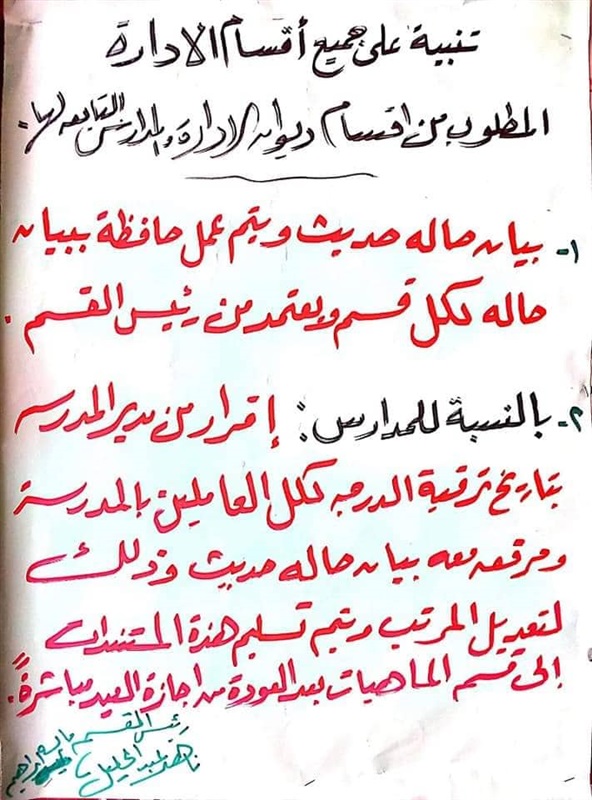 تنبية على جميع أقسام الادارة
المطلوب من اقسام ديوان الادارة والمدارس التابعه لها.
١- بيان حاله حديث ويتم عمل حافظة ببيان
حاله لكل قسم ويعتمد من رئيس القسم.
٢- بالنسبة للمدارس: إقرار من مدير المدرسه
بتاريخ ترقية الدرجه لكل العاملين بالمدرسة
ومرفعه معه بيان حاله حديث وذلك
لتعديل المرتب ويتم تسليم هذة المستندات
إلى قسم الماهيات بعد العودة من اجازة العيد مباشرةً.
رئيس القسم